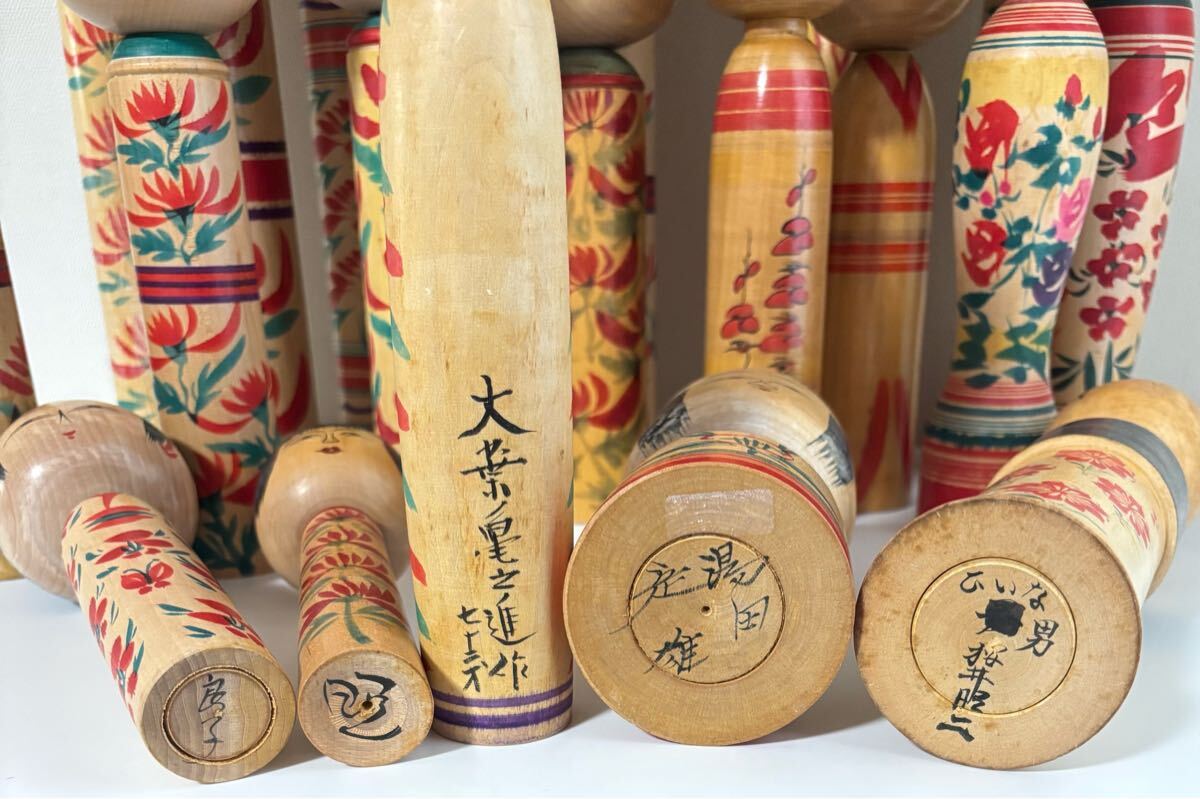 大葉亀之進作
七十三才
湯田
定雄
ひいな
男
桜井昭二